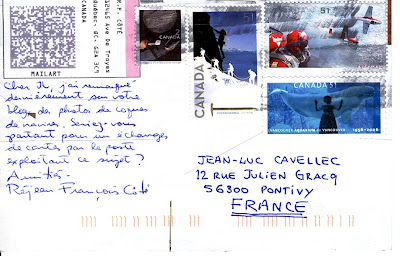 R.F. CÔTÉ
12465 Ave De Troyes
Québec, QC G2A 3C9
CANADA
MAILART
CANADA
51
51
CANADA 51
VANCOUVER AQUARIUM DE VANCOUVER 1956-2006
Cher JL, j'ai remarqué
dernièrement sur votre
blog, des photos de coques
de navires. Seriez-vous
partant pour un échange
de cartes par la poste
exploitant ce sujet ?
Amitiés -
Réjean François Côté
JEAN-LUC CAVELLEC
12 RUE JULIEN GRACQ
56300 PONTIVY
FRANCE